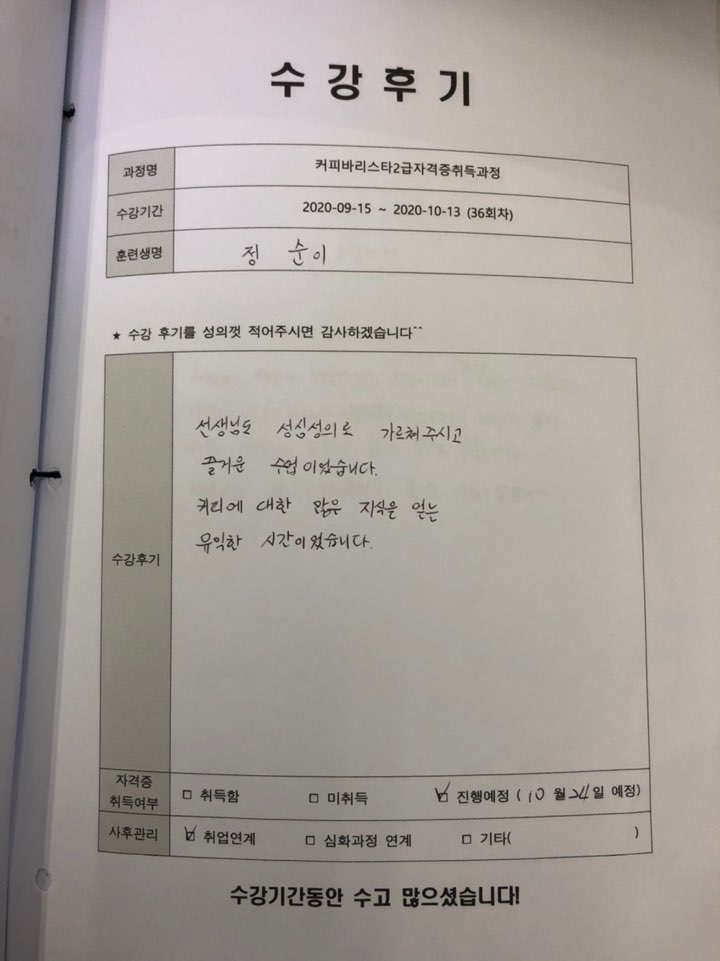 수강후기
과정명 커피바리스타2급자격증취득과정
수강기간 2020-09-15 ~ 2020-10-13 (36회차)
훈련생명 정 순이
★ 수강 후기를 성의껏 적어주시면 감사하겠습니다^^
선생님도 성심성의로 가르쳐주시고
즐거운 수업이었습니다.
커피에 대한 많은 지식을 얻는
유익한 시간이었습니다.
수강후기
자격증
취득여부 □ 취득함 □ 미취득 ☑ 진행예정 ( 10 월 24일 예정)
사후관리 ☑ 취업연계 □ 심화과정 연계 □ 기타( )
수강기간동안 수고 많으셨습니다!